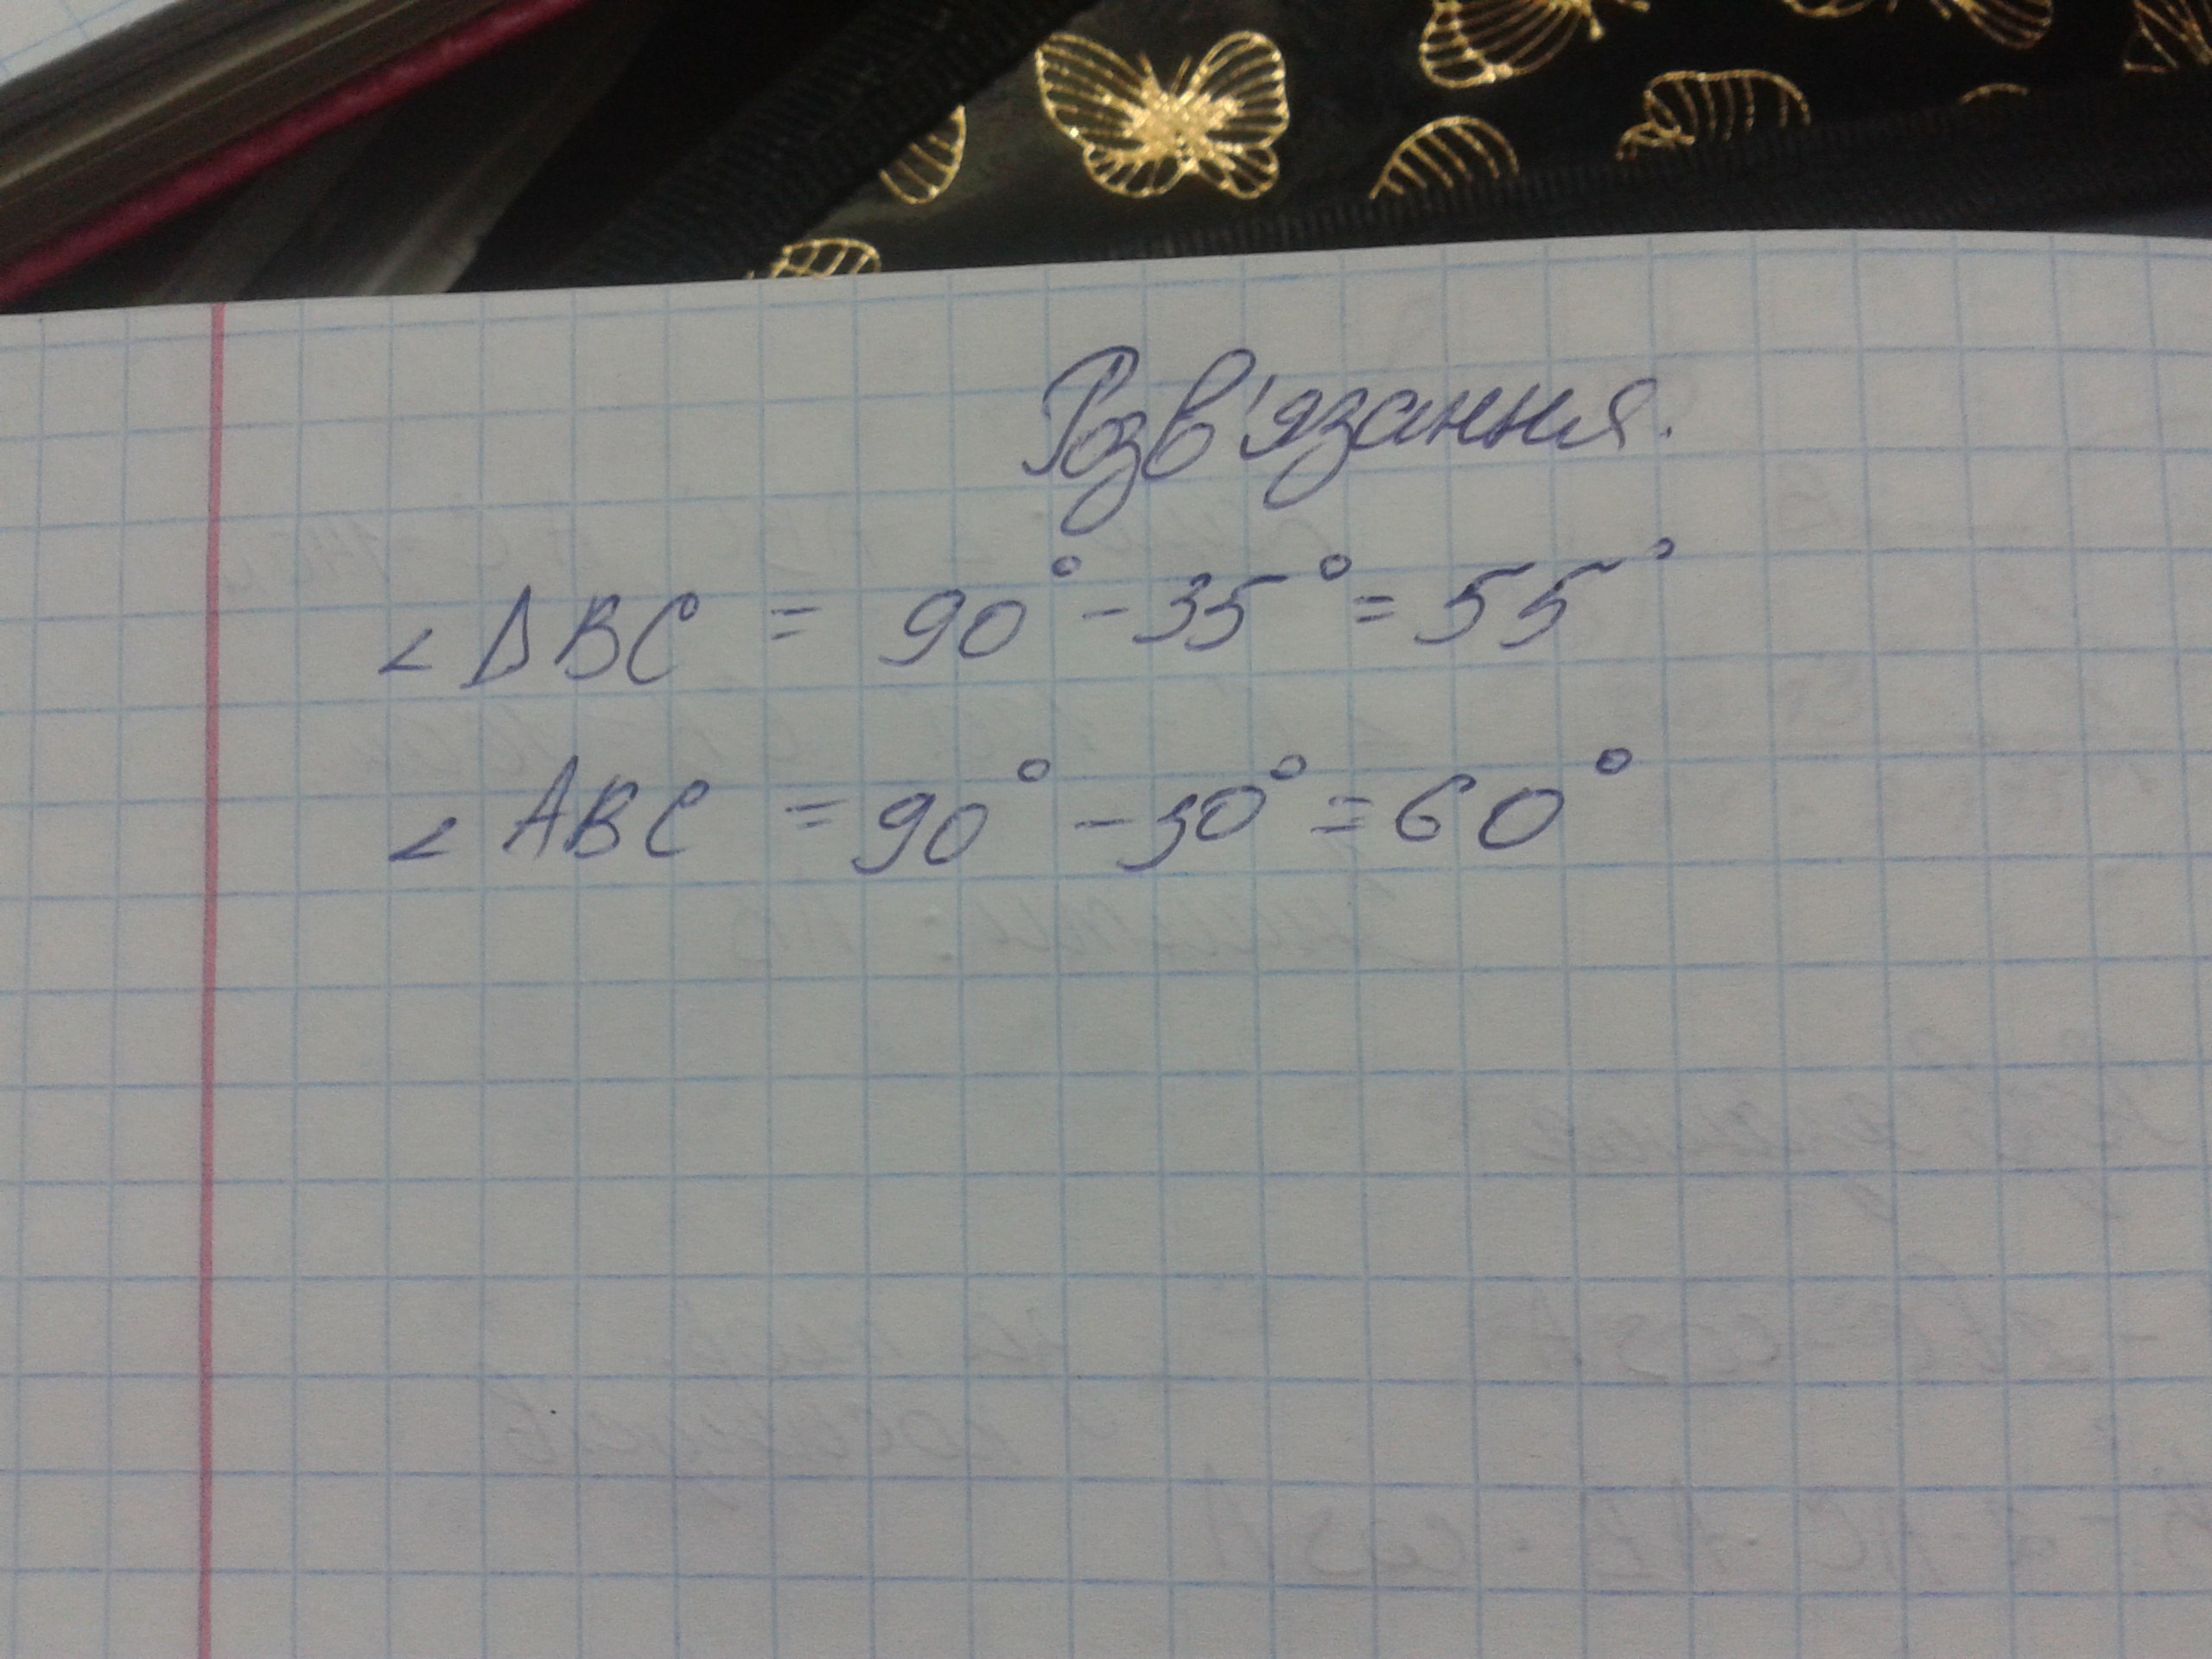 Розв'язання.
∠DBC = 90° - 35° = 55°
∠ABC = 90° - 30° = 60°